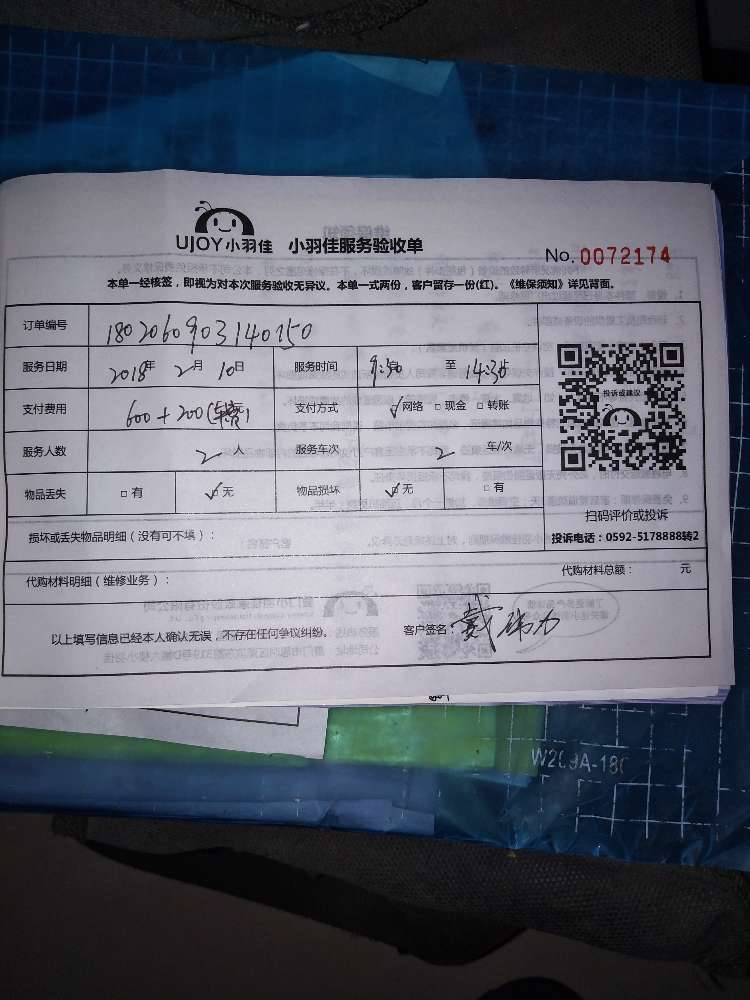 UJOY小羽佳 小羽佳服务验收单
No. 0072174
本单一经核签，即视为对本次服务验收无异议。本单一式两份，客户留存一份(红)。《维保须知》详见背面。
订单编号 1802060903140150
服务日期 2018年 2月 10日 服务时间 9:30 至 14:30
支付费用 600+200(车费) 支付方式 ☑网络 □现金 □转账
服务人数 2人 服务车次 2 车/次
物品丢失 □有 ☑无 物品损坏 ☑无 □有
投诉或建议
扫码评价或投诉
投诉电话：0592-5178888转2
损坏或丢失物品明细（没有可不填）：
代购材料明细（维修业务）： 代购材料总额： 元
以上填写信息已经本人确认无误，不存在任何争议纠纷。 客户签名：戴